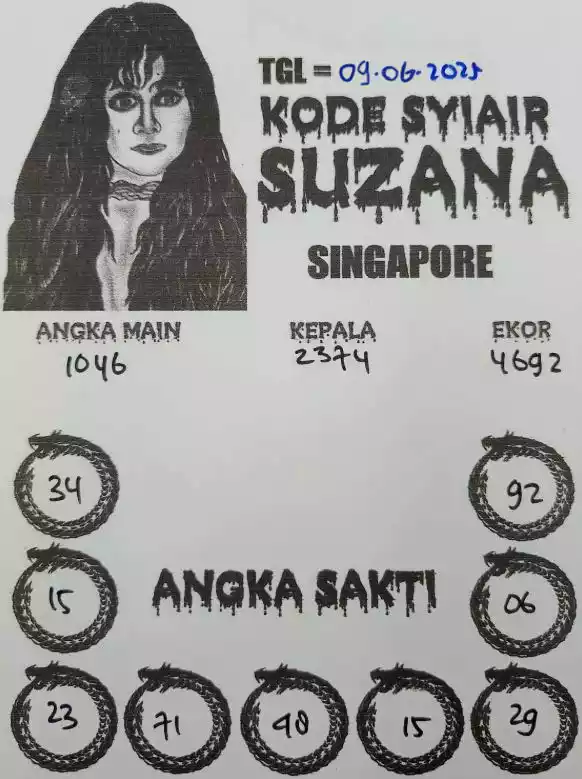 TGL = 09.06.2025
KODE SYIAIR
SUZANA
SINGAPORE
ANGKA MAIN KEPALA EKOR
1046 2374 4692
34 92
15 ANGKA SAKTI 06
23 71 48 15 29